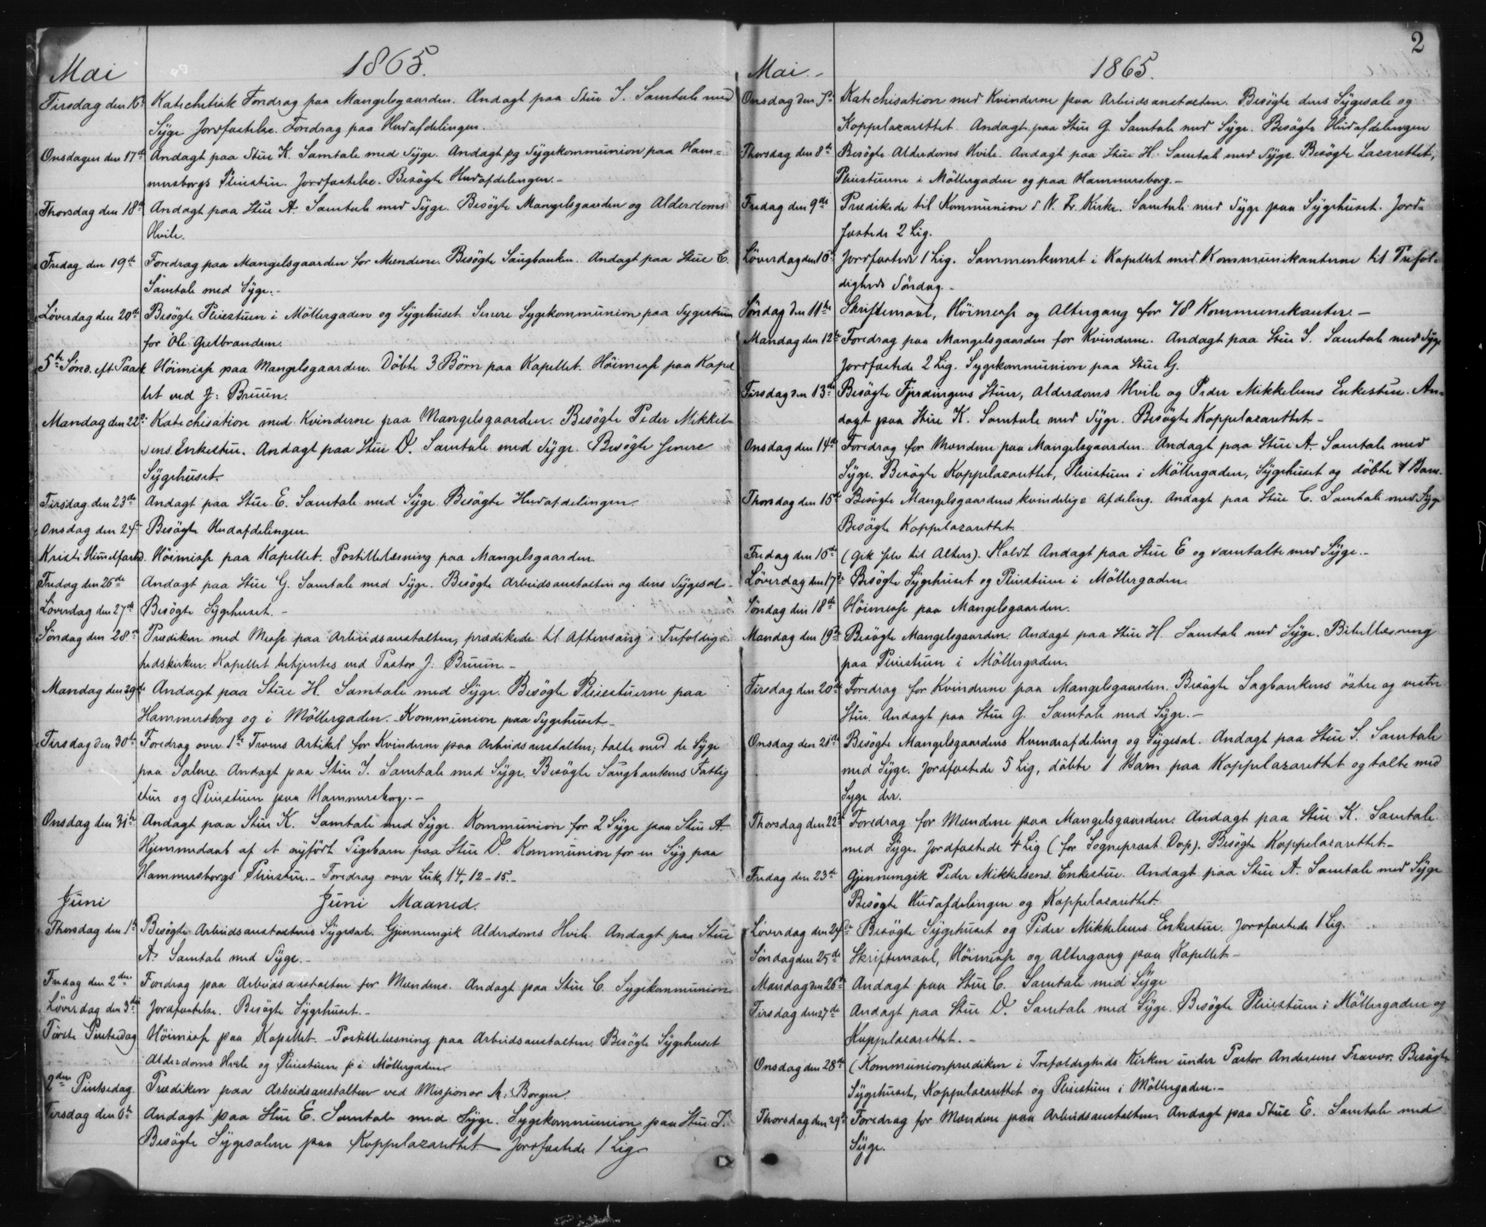 Mai 1865.
Tirsdag den 16de Katechetisk Foredrag paa Mangelsgaarden. Andagt paa Stue I. Samtale med
Syge Jordfæstelse. Foredrag paa Hudafdelingen.
Onsdagen den 17de Andagt paa Stue K. Samtale med Syge. Andagt og Sygekommunion paa Ham-
mersborgs Pleiestue. Jordfæstelse. Besøgte Hudafdelingen.-
Thorsdag den 18de Andagt paa Stue A. Samtale med Syge. Besøgte Mangelsgaarden og Alderdoms
Hvile.
Fredag den 19de Foredrag paa Mangelsgaarden for Mændene. Besøgte Saugbanken. Andagt paa Stue C.
Samtale med Syge.-
Löverdag den 20de Besøgte Pleiestuen i Möllergaden og Sygehuset. Senere Sygekommunion paa Sygestuen
for Ole Gulbrandsen.
5te Sönd. eft. Paask Höimesse paa Mangelsgaarden. Döbte 3 Börn paa Kapellet. Höimesse paa Kapel
let ved J: Bruun.
Mandag den 22de Katechisation med Kvinderne paa Mangelsgaarden. Besøgte Peder Mikkel-
sens Enkestue. Andagt paa Stue D. Samtale med Syge. Besøgte senere
Sygehuset.
Tirsdag den 23de Andagt paa Stue E. Samtale med Syge. Besøgte Hudafdelingen
Onsdag den 24de Besøgte Hudafdelingen.
Kristi Himmelfartsd. Höimesse paa Kapellet. Postillelæsning paa Mangelsgaarden.
Fredag den 26de Andagt paa Stue G. Samtale med Syge. Besøgte Arbeidsanstalten og dens Sygesal.-
Löverdag den 27de Besøgte Sygehuset.-
Söndag den 28de Prædiken med Messe paa Arbeidsanstalten, prædikede til Aftensang i Trefoldig-
hedskirken. Kapellet betjentes ved Pastor J. Bruun.-
Mandag den 29de Andagt paa Stue H. Samtale med Syge. Besøgte Pleiestuerne paa
Hammersborg og i Möllergaden. Kommunion paa Sygehuset-
Tirsdag den 30te Foredrag over 1ste Troens Artikel for Kvinderne paa Arbeidsanstalten; talte med de Syge
paa Salene. Andagt paa Stue I. Samtale med Syge. Besøgte Saugbankens Fattig
stue og Pleiestuen paa Hammersborg.-
Onsdag den 31te Andagt paa Stue K. Samtale med Syge. Kommunion for 2 Syge paa Stue A.
Hjemmedaab af et nyfödt Pigebarn paa Stue D. Kommunion for en Syg paa
Hammersborgs Pleiestue.- Foredrag over Luk. 14, 12-15.-
Juni Juni Maaned.
Thorsdag den 1ste Besøgte Arbeidsanstaltens Sygesal. Gjennemgik Alderdoms Hvile. Andagt paa Stue
A. Samtale med Syge.-
Fredag den 2den Foredrag paa Arbeidsanstalten for Mændene. Andagt paa Stue C. Sygekommunion
Löverdag den 3de Jordfæstelse. Besøgte Sygehuset.-
Förste Pintsedag Höimesse paa Kapellet. Postillelæsning paa Arbeidsanstalten. Besøgte Sygehuset
Alderdoms Hvile og Pleiestuen i Möllergaden
2den Pintsedag Prædiken paa Arbeidsanstalten ved Missionær A. Borgen
Tirsdag den 6te Andagt paa Stue E. Samtale med Syge. Sygekommunion paa Stue I.
Besøgte Sygesalene paa Koppelazarettet Jordfæstede 1 Lig
2
Mai.- 1865.
Onsdag den 7de Katechisation med Kvinderne paa Arbeidsanstalten. Besøgte dens Sygesale og
Koppelazarettet. Andagt paa Stue G. Samtale med Syge. Besøgte Hudafdelingen
Thorsdag den 8de Besøgte Alderdoms Hvile. Andagt paa Stue H. Samtale med Syge. Besøgte Lazarettet,
Pleiestuerne i Möllergaden og paa Hammersborg.-
Fredag den 9de Prædikede til Kommunion i V. Fr. Kirke. Samtale med Syge paa Sygehuset. Jord-
fæstede 2 Lig.
Löverdag den 10de Jordfæstede 1 Lig. Sammenkomst i Kapellet med Kommunikanterne til Trefol-
digheds Söndag.-
Söndag den 11te Skriftemaal, Höimesse og Altergang for 78 Kommunikanter.-
Mandag den 12te Foredrag paa Mangelsgaarden for Kvinderne. Andagt paa Stue I. Samtale med Syge
Jordfæstede 2 Lig. Sygekommunion paa Stue G.
Tirsdag den 13de Besøgte Fjerdingens Stuer, Alderdoms Hvile og Peder Mikkelsens Enkestue. An-
dagt paa Stue K. Samtale med Syge. Besøgte Koppelazarettet-
Onsdag den 14de Foredrag for Mændene paa Mangelsgaarden. Andagt paa Stue A. Samtale med
Syge. Besøgte Koppelazarettet, Pleiestuen i Möllergaden, Sygehuset og döbte 1 Barn.
Thorsdag den 15de Besøgte Mangelsgaardens kvindelige Afdeling. Andagt paa Stue C. Samtale med Syge
Besøgte Koppelazarettet
Fredag den 16de (Gik selv til Alters). Holdt Andagt paa Stue E og samtalte med Syge.-
Löverdag den 17de Besøgte Sygehuset og Pleiestuen i Möllergaden
Söndag den 18de Höimesse paa Mangelsgaarden.
Mandag den 19de Besøgte Mangelsgaarden. Andagt paa Stue H. Samtale med Syge. Bibellæsning
paa Pleiestuen i Möllergaden.
Tirsdag den 20de Foredrag for Kvinderne paa Mangelsgaarden. Besøgte Sagbankens östre og vestre
Stue. Andagt paa Stue G. Samtale med Syge.-
Onsdag den 21de Besøgte Mangelsgaardens Kvindeafdeling og Sygesal. Andagt paa Stue I. Samtale
med Syge. Jordfæstede 5 Lig, döbte 1 Barn paa Koppelazarettet og talte med
Syge der.
Thorsdag den 22de Foredrag for Mændene paa Mangelsgaarden. Andagt paa Stue K. Samtale
med Syge. Jordfæstede 4 Lig (for Sogneprest Dop). Besøgte Koppelazarettet-
Fredag den 23de Gjennemgik Peder Mikkelsens Enkestue. Andagt paa Stue A. Samtale med Syge
Besøgte Hudafdelingen og Koppelazarettet.
Löverdag den 24de Besøgte Sygehuset og Peder Mikkelsens Enkestue. Jordfæstede 1 Lig.
Söndag den 25de Skriftemaal, Höimesse og Altergang paa Kapellet-
Mandag den 26de Andagt paa Stue C. Samtale med Syge
Tirsdag den 27de Andagt paa Stue D. Samtale med Syge. Besøgte Pleiestuen i Möllergaden og
Koppelazarettet.-
Onsdag den 28de (Kommunionprædiken i Trefoldigheds Kirken under Pastor Andersens Fravær. Besøgte
Sygehuset, Koppelazarettet og Pleiestuen i Möllergaden.-
Thorsdag den 29de Foredrag for Mændene paa Arbeidsanstalten. Andagt paa Stue E. Samtale med
Syge.